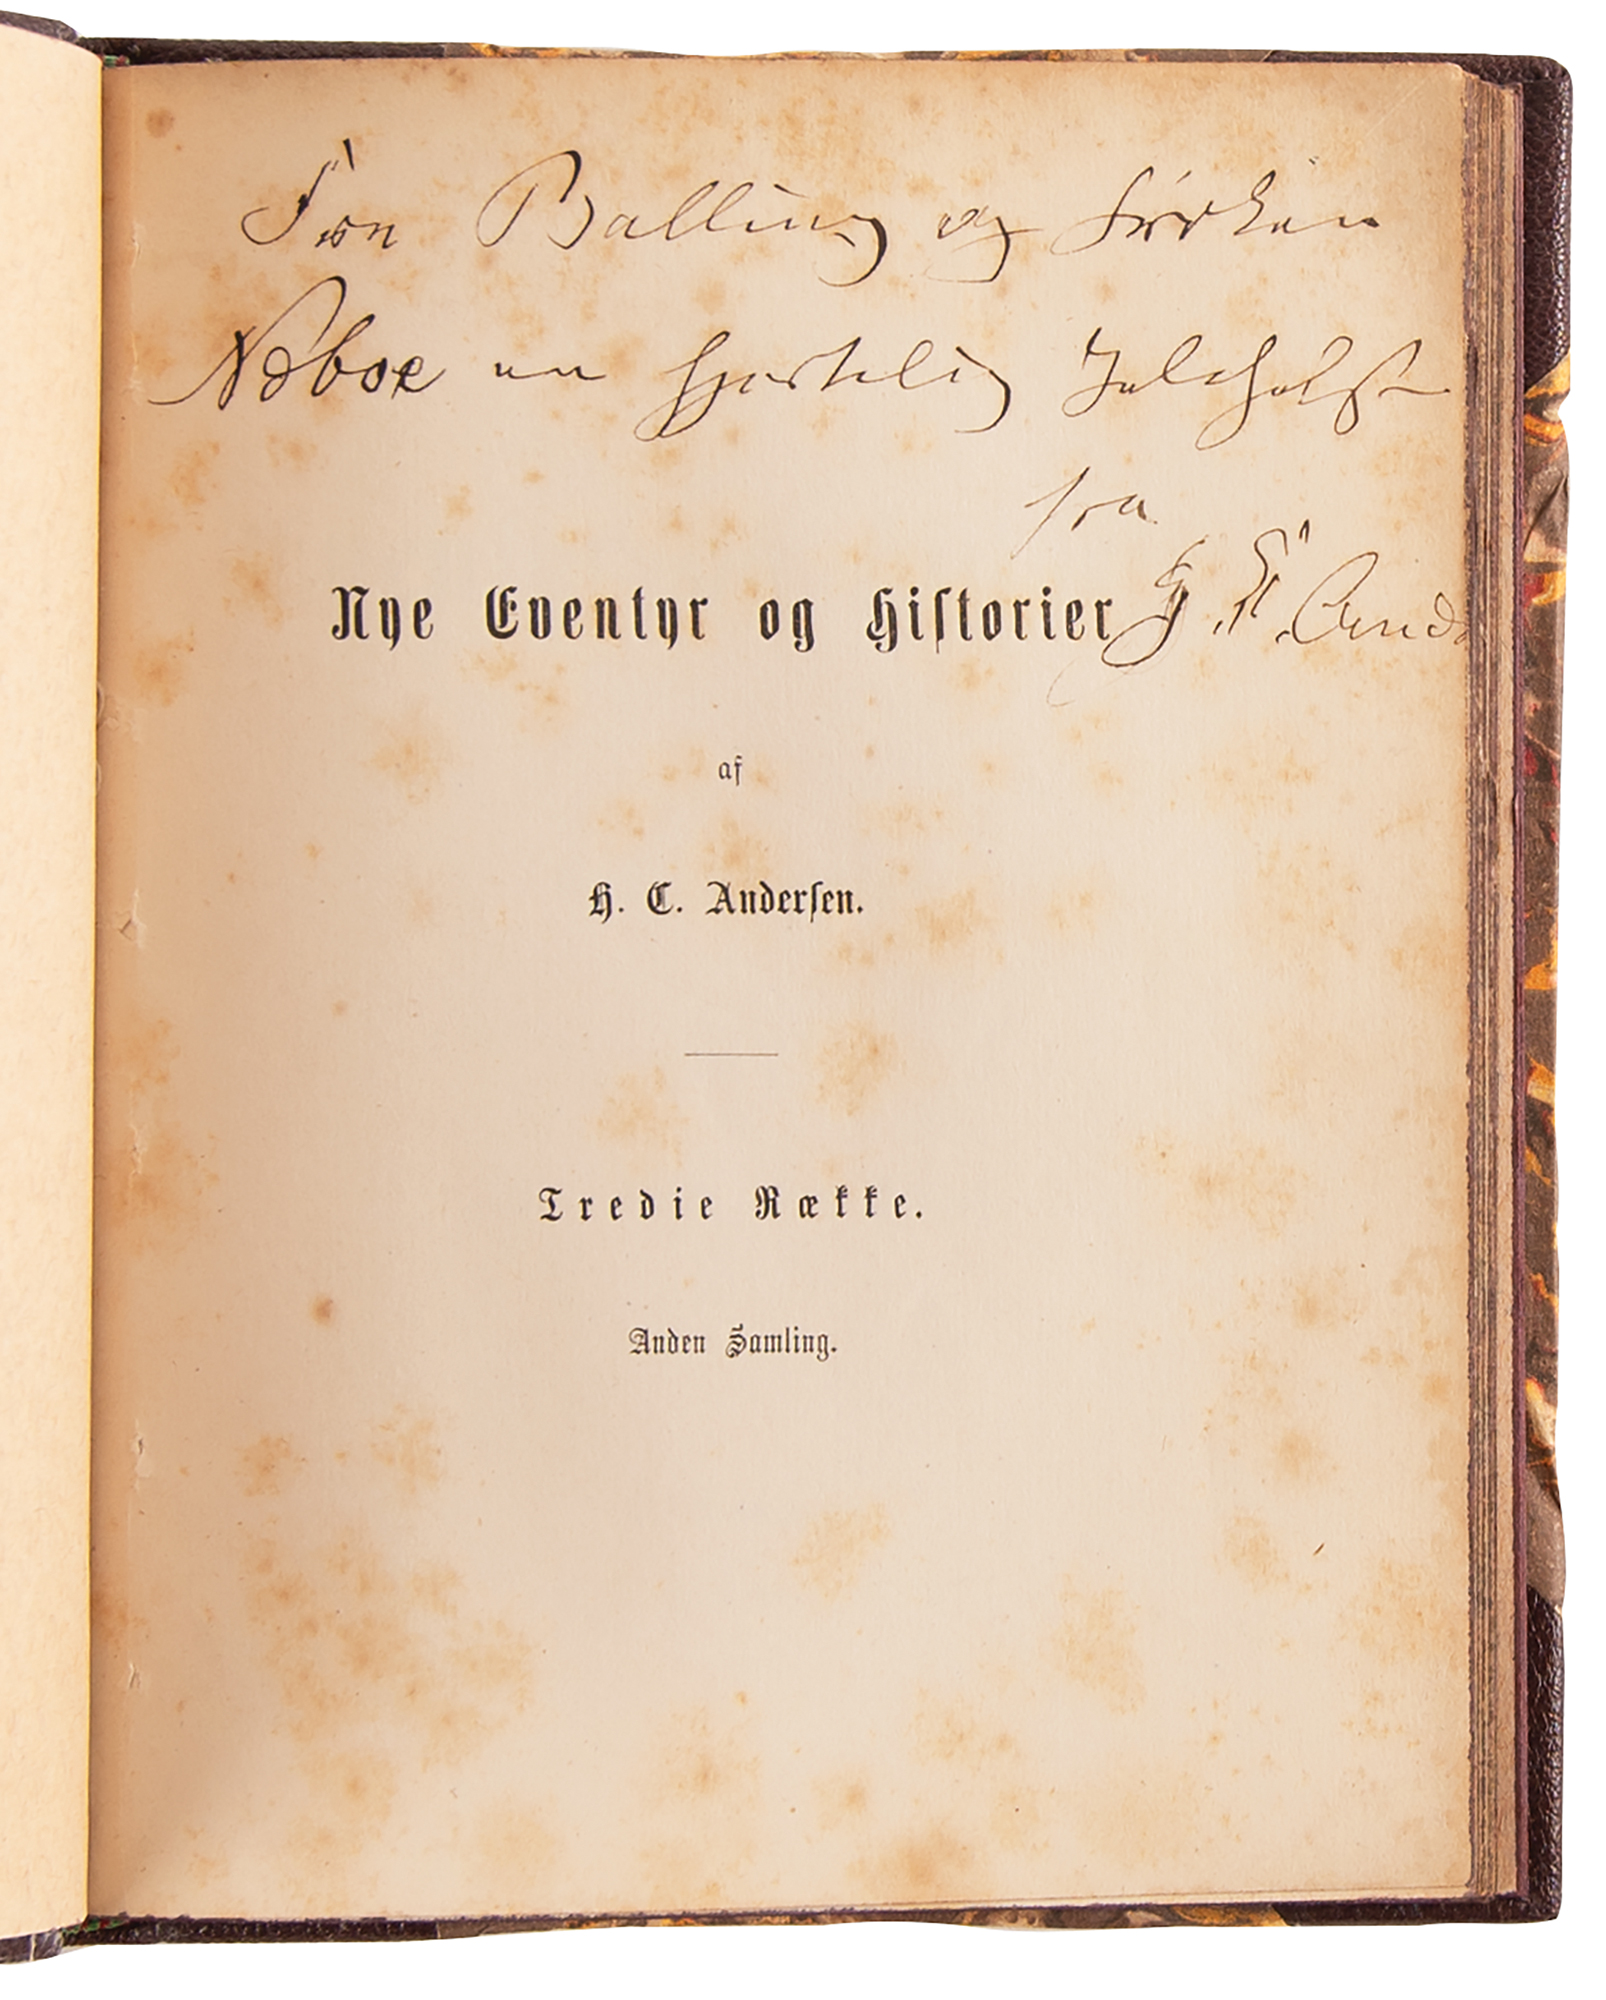 Frøn Balling og Frøken
Næboe en hjertelig Julehilsen
fra
H. C. And
Nye Eventyr og Hiſtorier
af
H. C. Anderſen.
Tredie Række.
Anden Samling.